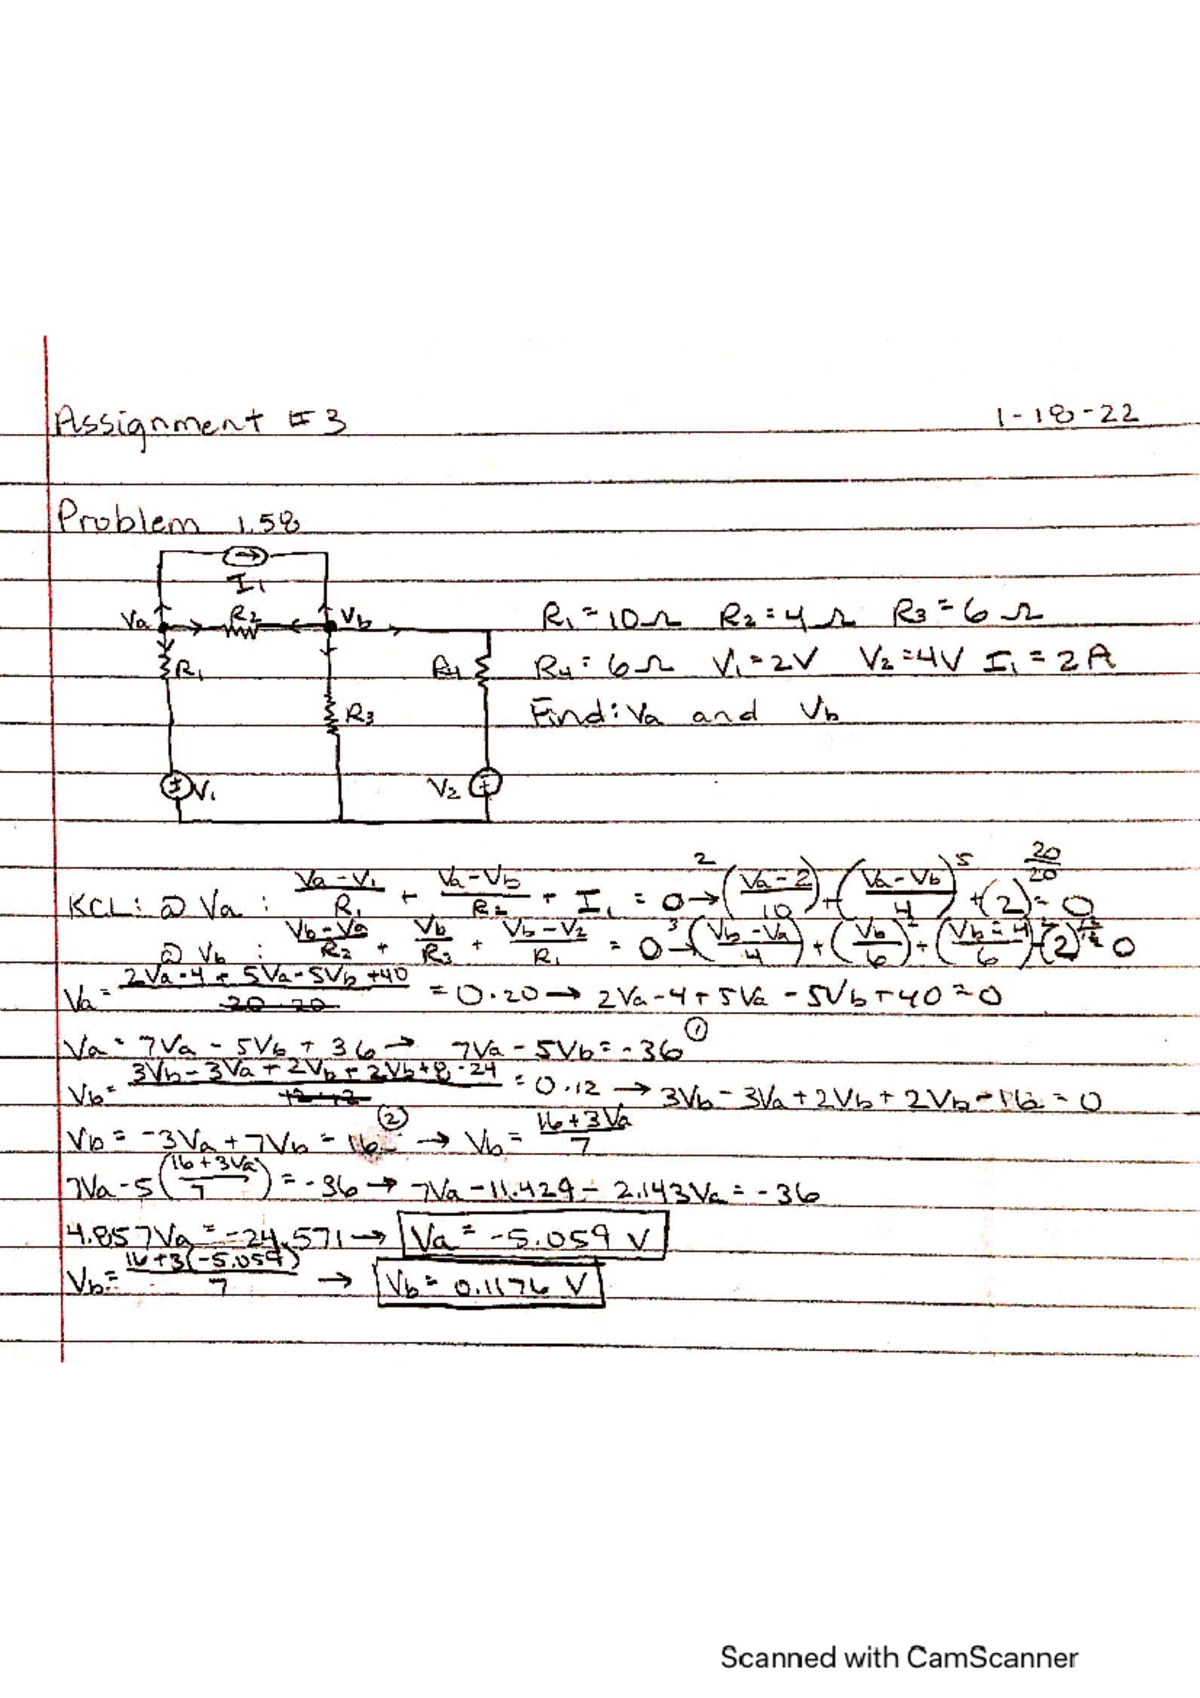 Assignment #3 1-18-22
Problem 1.58
I₁
Va R₂ Vb
R₁ R₄
R₃
V₁ V₂
R₁ = 10Ω R₂ = 4Ω R₃ = 6Ω
R₄ = 6Ω V₁ = 2V V₂ = 4V I₁ = 2A
Find: Va and Vb
KCL: @ Va : (Va - V₁)/R₁ + (Va - Vb)/R₂ + I₁ = 0 → ²((Va - 2)/10) + ((Va - Vb)/4)⁵ + (2)20/20 = 0
@ Vb : (Vb - Va)/R₂ + Vb/R₃ + (Vb - V₂)/R₁ = 0 → ³((Vb - Va)/4) + (Vb/6)² + ((Vb - 4)/6)² - (2) = 0
Va = (2Va - 4 + 5Va - 5Vb + 40)/20 = 0·20 → 2Va - 4 + 5Va - 5Vb + 40 = 0
Va = 7Va - 5Vb + 36 → 7Va - 5Vb = -36 ①
Vb = (3Vb - 3Va + 2Vb + 2Vb + 8 - 24)/12 = 0·12 → 3Vb - 3Va + 2Vb + 2Vb - 16 = 0
Vb = -3Va + 7Vb = 16 ② → Vb = (16 + 3Va)/7
7Va - 5((16 + 3Va)/7) = -36 → 7Va - 11.429 - 2.143Va = -36
4.857Va = -24.571 → Va = -5.059 V
Vb = (16 + 3(-5.059))/7 → Vb = 0.1176 V
Scanned with CamScanner